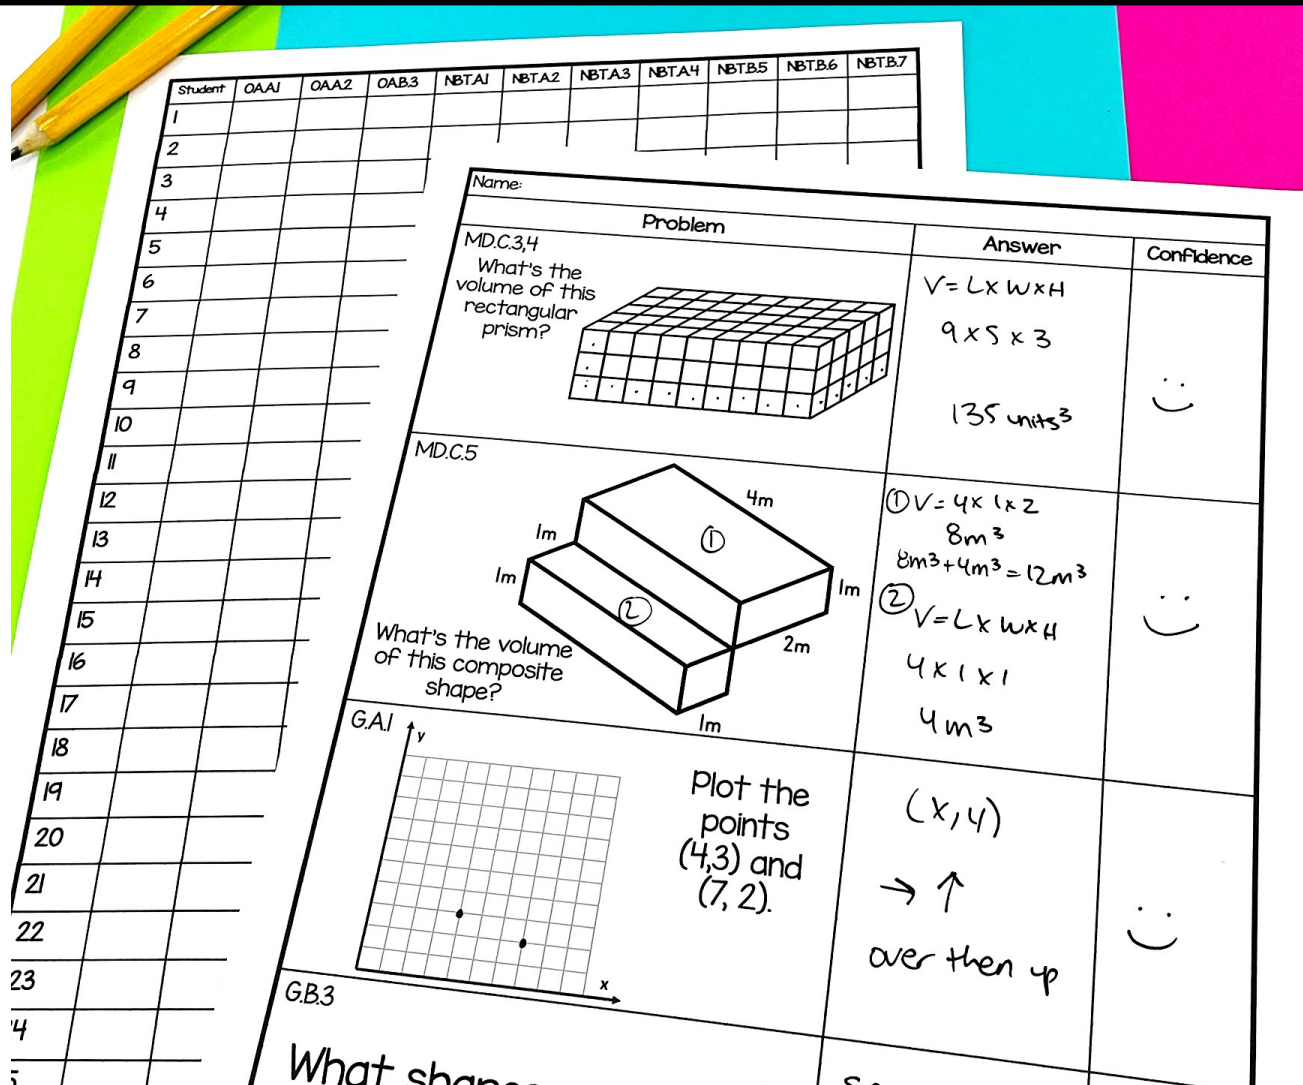 Student OA.A.1 OA.A.2 OA.B.3 NBT.A.1 NBT.A.2 NBT.A.3 NBT.A.4 NBT.B.5 NBT.B.6 NBT.B.7
1
2
3
4
5
6
7
8
9
10
11
12
13
14
15
16
17
18
19
20
21
22
23
Name:
Problem Answer Confidence
MD.C.3,4
What's the
volume of this
rectangular
prism?
V = L x W x H
9 x 5 x 3
135 units³
MD.C.5
4m
1m
1m
1m
2m
1m
①
②
What's the volume
of this composite
shape?
① V = 4 x 1 x 2
8m³
8m³ + 4m³ = 12m³
② V = L x W x H
4 x 1 x 1
4m³
G.A.1
y
x
Plot the
points
(4,3) and
(7, 2).
(x,y)
→ ↑
over then up
G.B.3
What